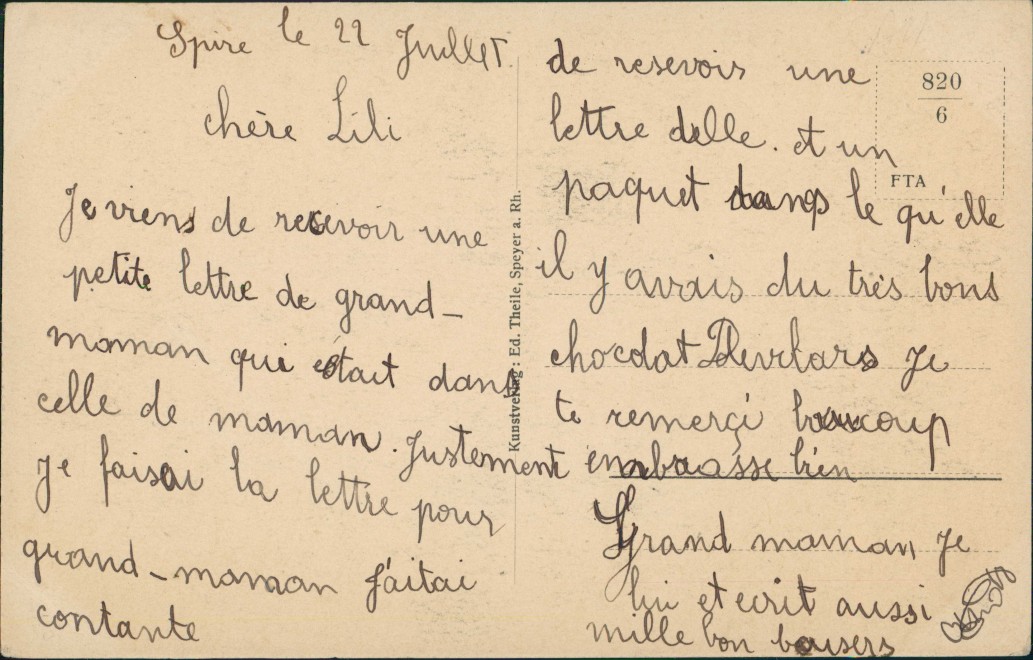 Spire le 22 Juillet.
chère Lili
Je viens de recevoir une
petite lettre de grand_
maman qui était dans
celle de maman. Justement
je faisai la lettre pour
grand_maman j'aitai
contante
Kunstverlag: Ed. Theile, Speyer a. Rh.
de resevoir une
lettre delle. et un
paquet dans le qu'elle
il y avais du très bons
chocolat Je
te remerçi baucoup
embrasse bien
Grand maman je
lui et ecrit aussi
mille bon baisers
820
6
FTA